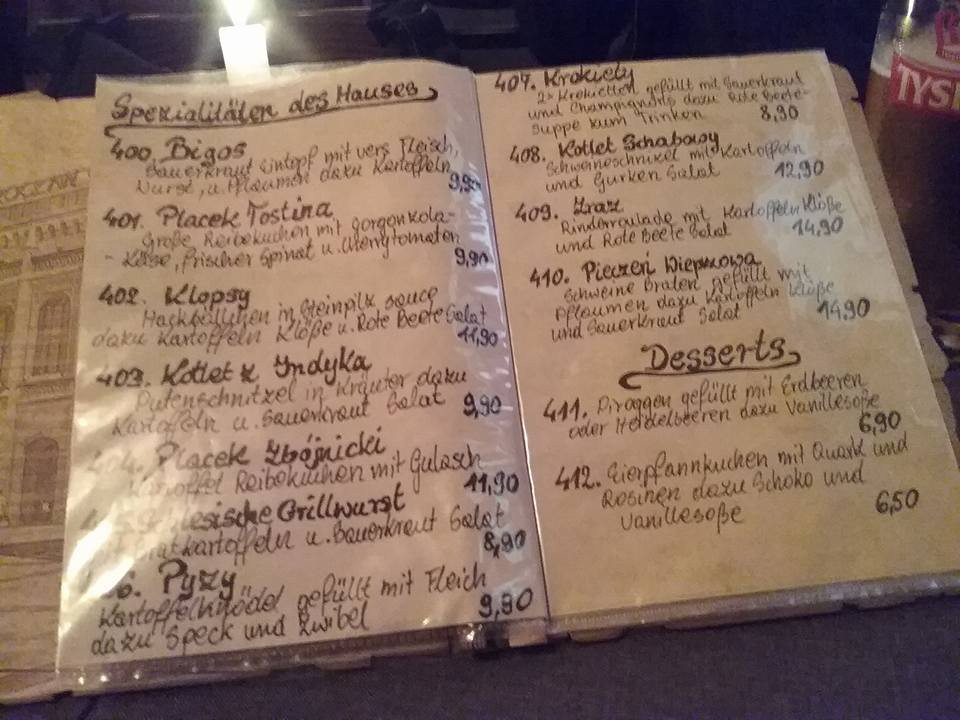 Spezialitäten des Hauses
400. Bigos
Sauerkraut Eintopf mit vers Fleisch,
Wurst, u. Pflaumen dazu Kartoffeln
9,90
401. Placek Tostina
Große Reibekuchen mit gorgonkola-
- Käse, frischer Spinat u. cherrytomaten
9,90
402. Klopsy
Hackbällchen in Steinpilz sauce
dazu Kartoffeln Klöße u. Rote Beete Salat
11,90
403. Kotlet z Indyka
Putenschnitzel in Kräuter dazu
Kartoffeln u. Sauerkraut Salat
9,90
404. Placek Zbójnicki
Kartoffel Reibekuchen mit Gulasch
11,90
Schlesische Grillwurst
mit Bratkartoffeln u. Sauerkraut Salat
8,90
6. Pyzy
Kartoffelknödel gefüllt mit Fleich
dazu Speck und Zwibel
9,90
407. Krokiety
2x Krokietten gefüllt mit Sauerkraut
und Champignons dazu Rote Beete-
Suppe zum Trinken
8,90
408. Kotlet Schabowy
Schweineschnizel mit Kartoffeln
und Gurken Salat
12,90
409. Zraz
Rinderroulade mit Kartoffeln Klöße
und Rote Beete Salat
14,90
410. Pieczeń Wieprzowa
Schweine Braten gefüllt mit
Pflaumen dazu Kartoffeln Klöße
und Sauerkraut Salat
14,90
Desserts
411. Piroggen gefüllt mit Erdbeeren
oder Heidelbeeren dazu Vanillesoße
6,90
412. Eierpfannkuchen mit Quark und
Rosinen dazu Schoko und
Vanillesoße
6,50
TYSK